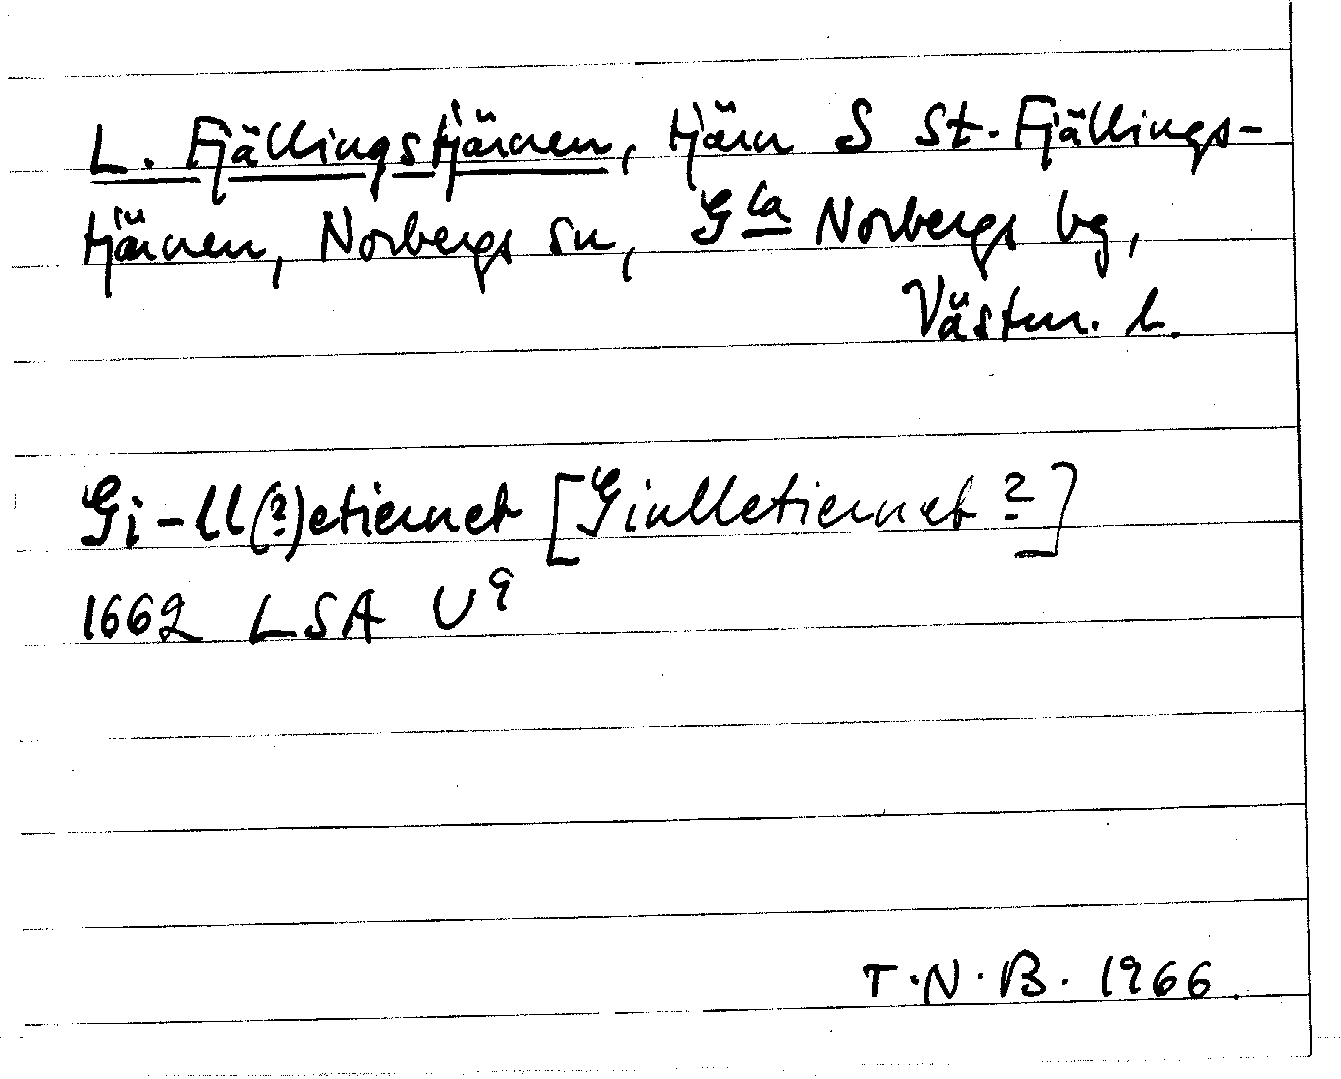 L. Fjällingstjärnen, tjärn S St. Fjällings-
tjärnen, Norbergs sn, Gla Norbergs bg,
Västm. l.
Gi-ll(?)etiernet [Giulletiernet ?]
1662 LSA U9
T.N.B. 1966.